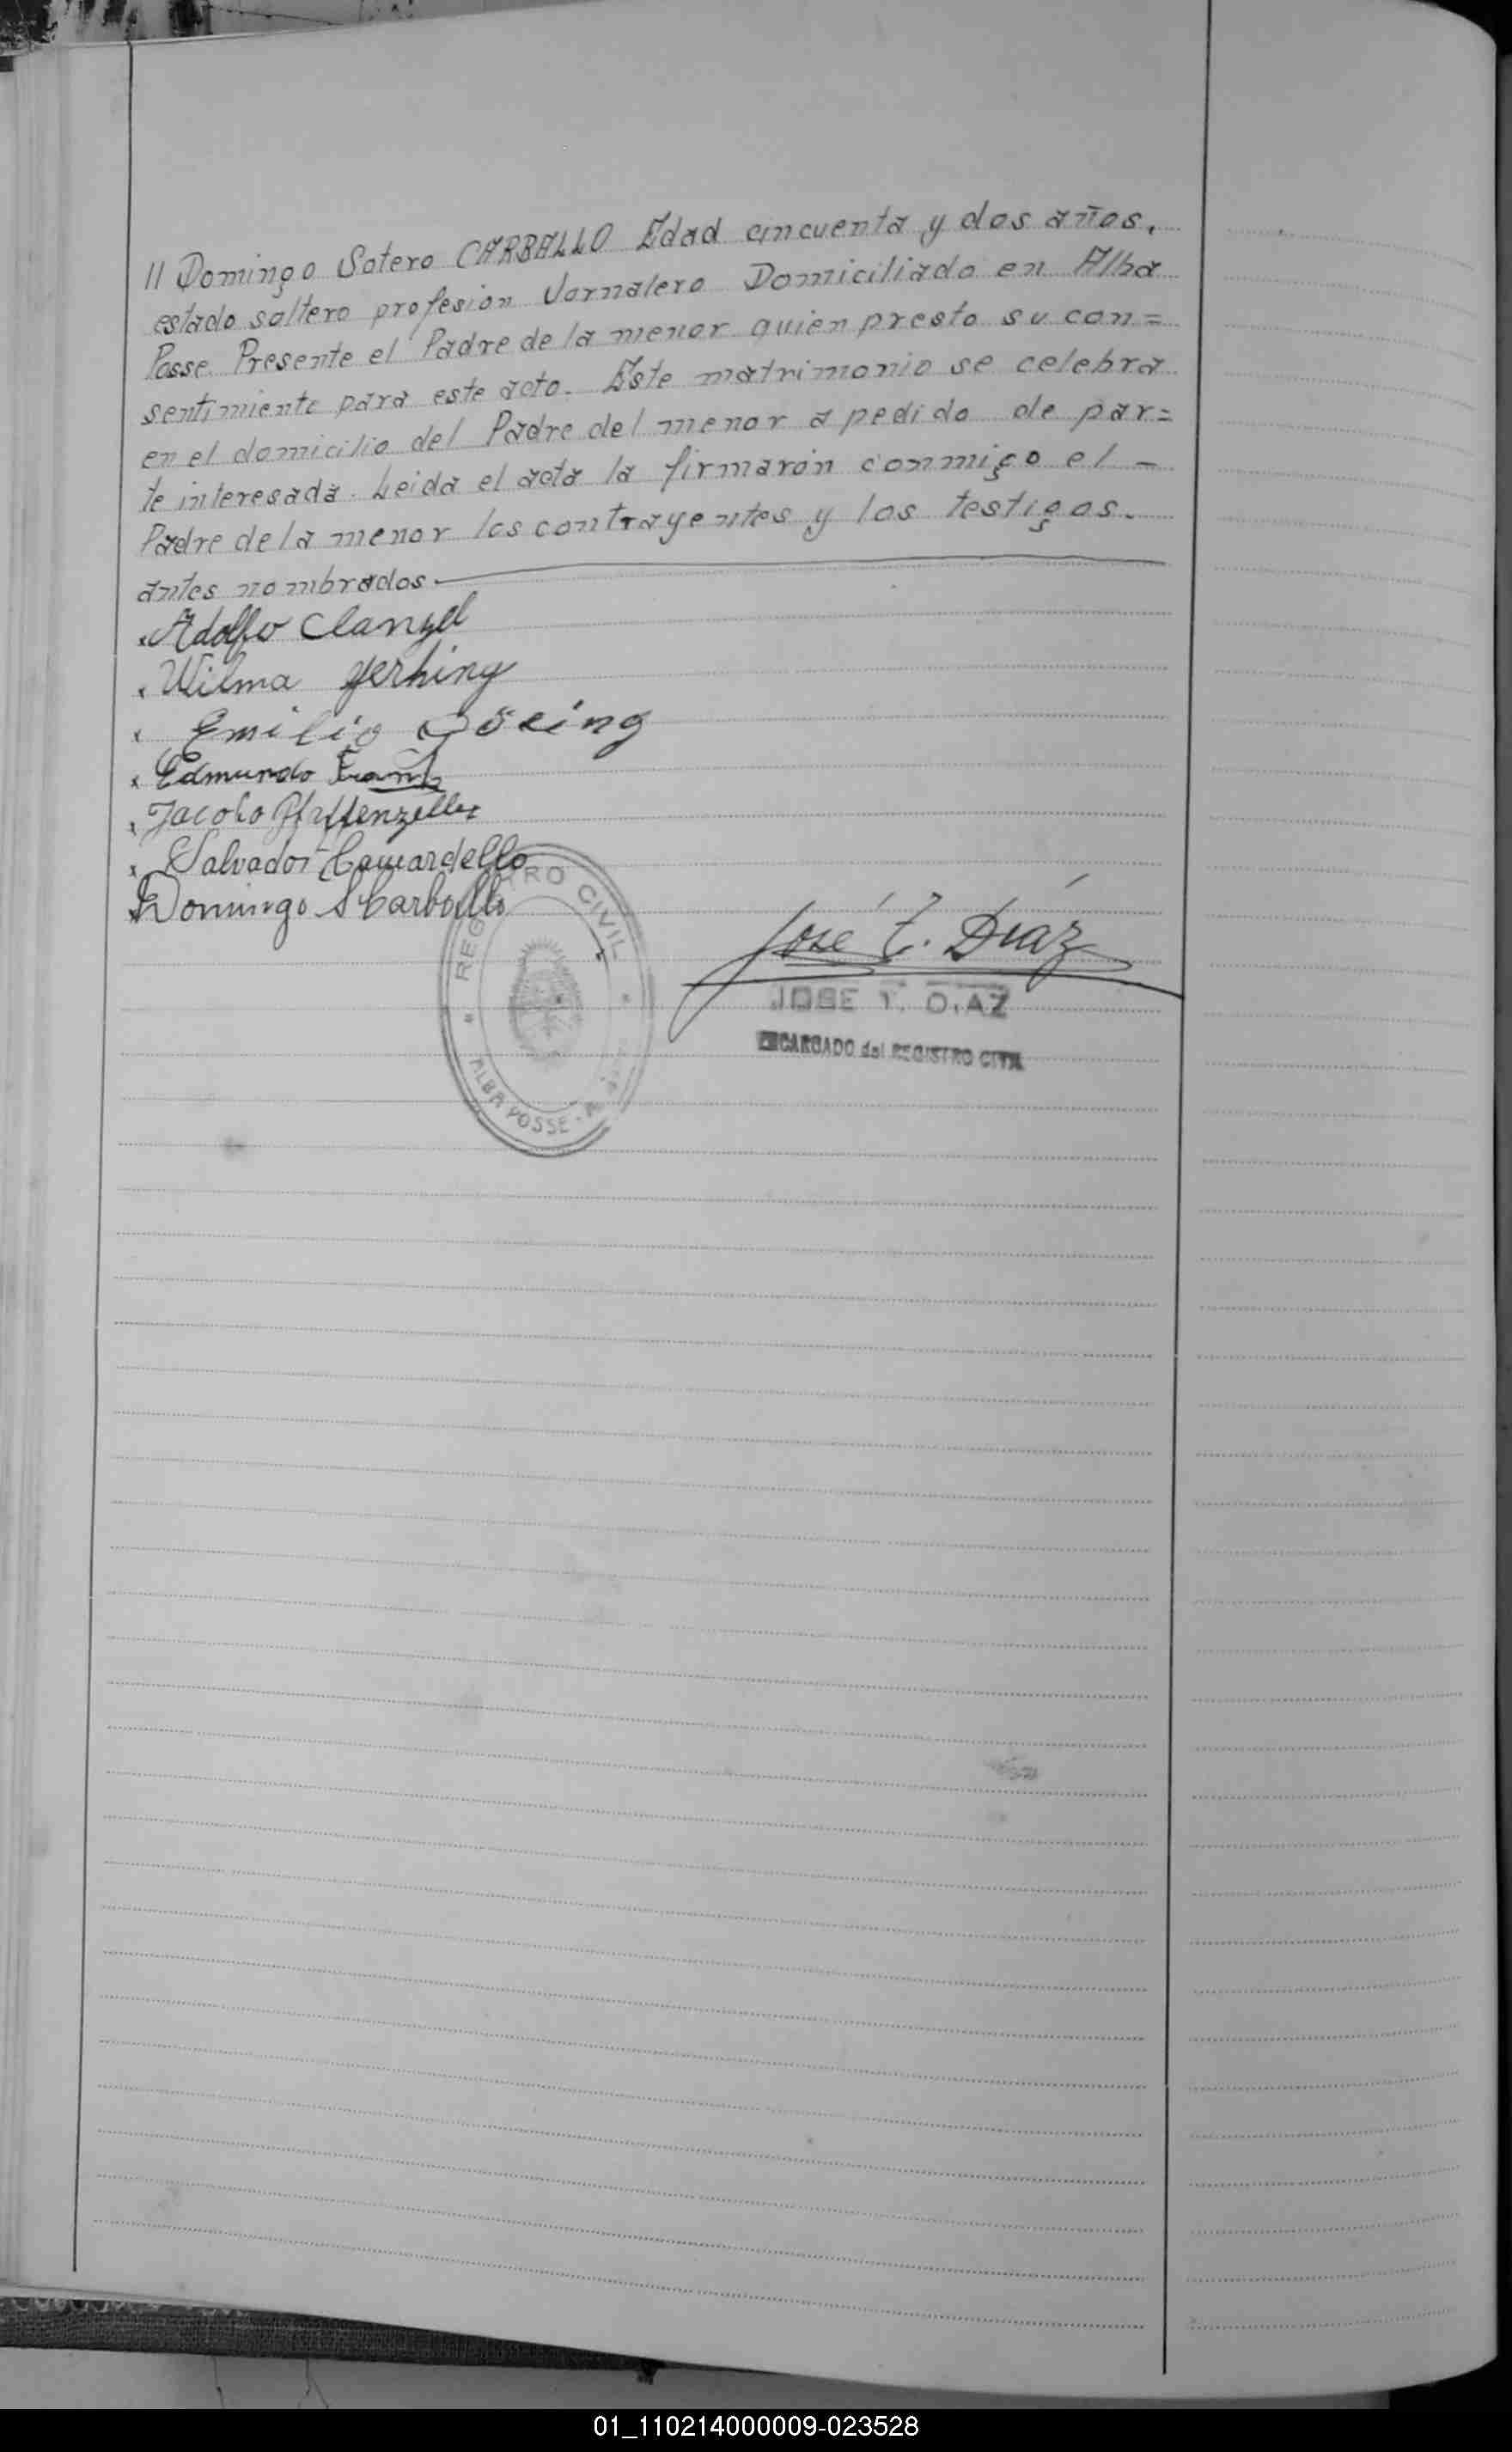 11 Domingo Sotero CARBALLO Edad cincuenta y dos años.
estado soltero profesion Jornalero Domiciliado en Alba
Posse. Presente el Padre de la menor quien presto su con=
sentimiento para este acto. Este matrimonio se celebra
en el domicilio del Padre del menor a pedido de par=
te interesada. Leida el acta la firmarón conmigo el -
Padre de la menor los contrayentes y los testigos.
antes nombrados.
Adolfo
Wilma Yerhing
Emilio
Edmundo
Jacobo
Salvador Camardello
Domingo S Carballo
REGISTRO CIVIL
ALBA POSSE
José T. Díaz
JOSE T. DIAZ
ENCARGADO del REGISTRO CIVIL
01_110214000009-023528